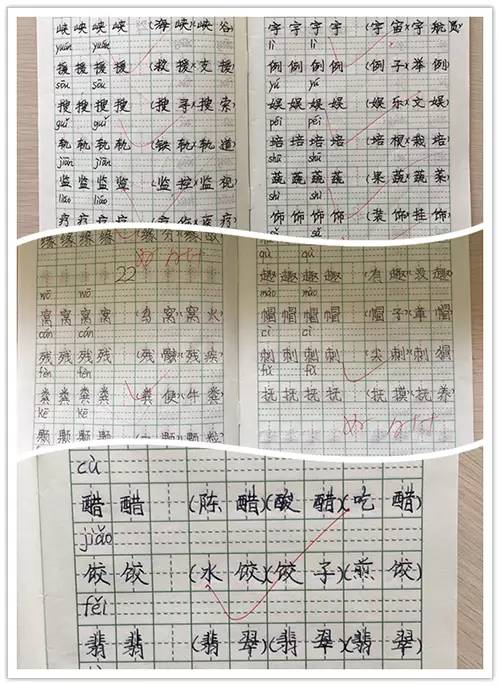 峡 峡 峡 峡 (海 峡)(峡 谷)
yuán yuán
援 援 援 援 (救 援)(支 援)
sōu sōu
搜 搜 搜 搜 (搜 寻)(搜 索)
guǐ guǐ
轨 轨 轨 轨 (铁 轨)(轨 道)
jiān jiān
监 监 监 监 (监 控)(监 视)
liáo liáo
疗 疗 疗 疗
宇 宇 宇 宇 (宇 宙)(宇 航员)
lì lì
例 例 例 例 (例 子)(举 例)
yú yú
娱 娱 娱 娱 (娱 乐)(文 娱)
péi péi
培 培 培 培 (培 根)(栽 培)
shū shū
蔬 蔬 蔬 蔬 (果 蔬)(蔬 菜)
shì shì
饰 饰 饰 饰 (装 饰)(挂 饰)
缘 缘 缘 缘
22
wō wō
窝 窝 窝 窝 (鸟 窝)(窝 火)
cán cán
残 残 残 残 (残 酷)(残 疾)
fèn fèn
粪 粪 粪 粪 (粪 便)(牛 粪)
kē kē
颗 颗 颗 颗
qù qù
趣 趣 趣 趣 (有 趣)(没 趣)
mào mào
帽 帽 帽 帽 (帽 子)(草 帽)
cì cì
刺 刺 刺 刺 (尖 刺)(刺 猬)
fǔ fǔ
抚 抚 抚 抚 (抚 摸)(抚 养)
cù
醋 醋 (陈 醋)(酸 醋)(吃 醋)
jiǎo
饺 饺 (水 饺)(饺 子)(煎 饺)
fěi
翡 翡 (翡 翠)(翡 翠)(翡 翠)